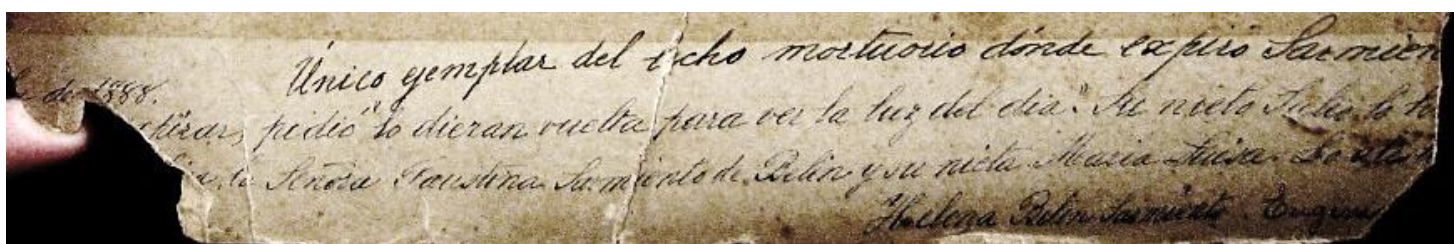 Único ejemplar del lecho mortuorio dónde expiró Sarmien
de 1888.
pirar, pidió "lo dieran vuelta para ver la luz del dia". Su nieto Julio lo to
la Señora Faustina Sarmiento de Belin y su nieta Maria Luisa. Lo
Helena Belin Sarmiento. Eugenia